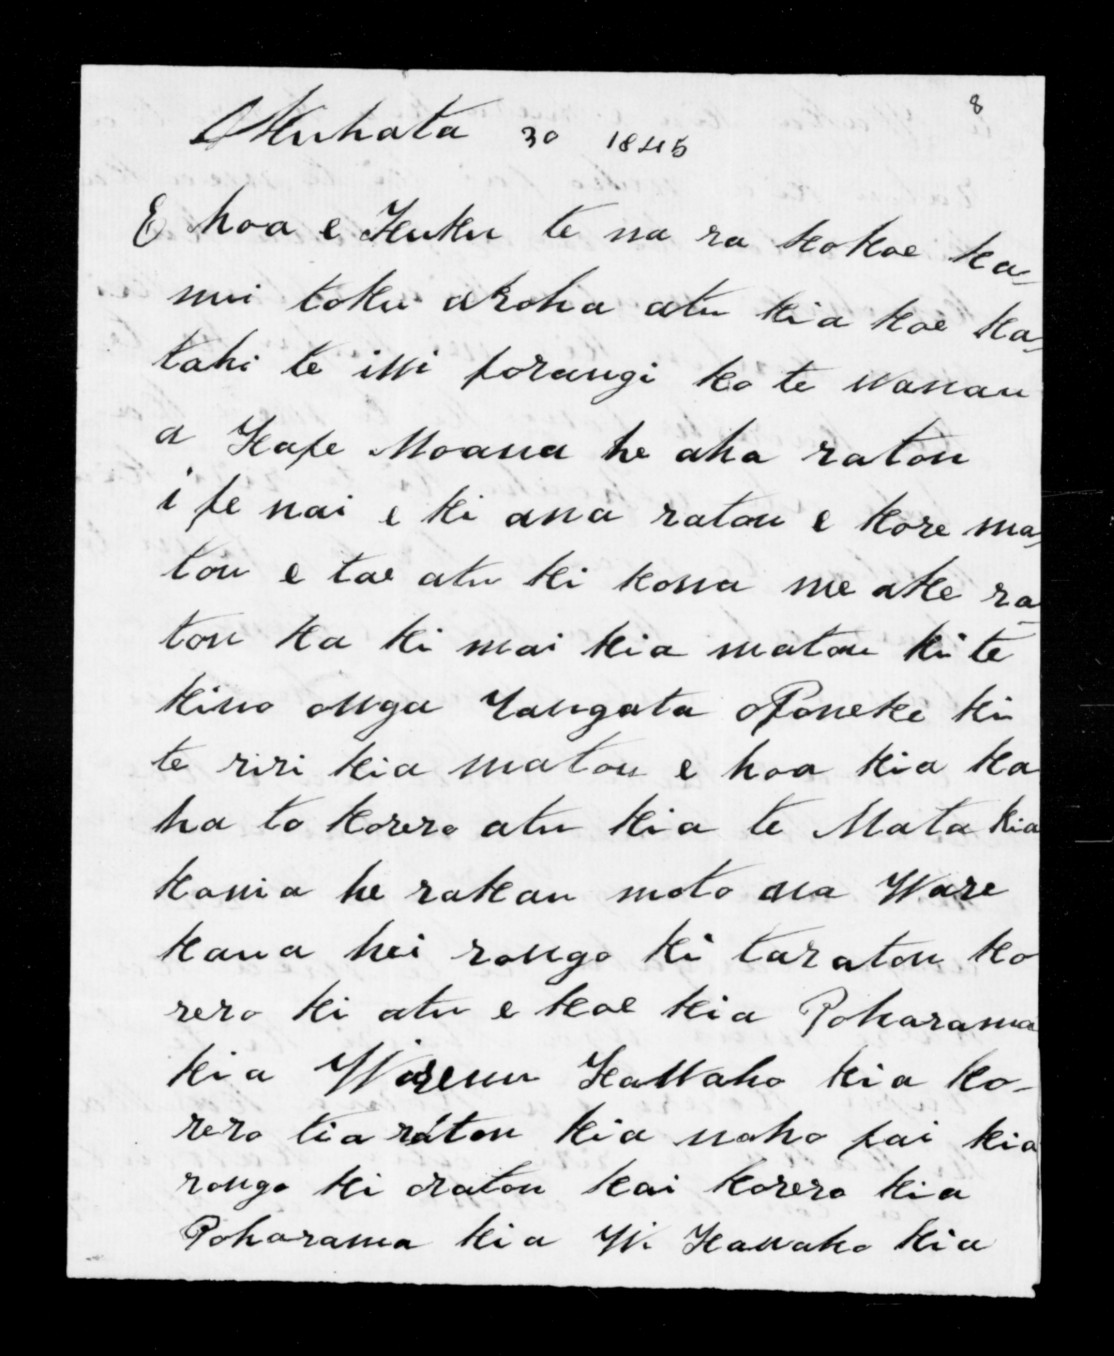 8
Akuhata 30 1845
E hoa e Kuku te na ra kokoe ka-
nui toku aroha atu kia koe ka-
tahi te iwi porangi ko te wanau
a Kape Moana he aha ratou
i pe nai e ki ana ratou e kore ma-
tou e tae atu ki kona me ake ra-
tou ka ki mai kia matou ki te
kino onga Tangata oPoneke ki
te riri kia matou e hoa kia ka
ha to korero atu kia te Mata kia
kania he rakau moto ona Ware
kaua hei rongo ki taratou ko
rero ki atu e koe kia Poharama
kia Wiremu Kawaho kia ko-
rero tia ratou kia noho pai kia
rongo ki oratou kai korero kia
Poharama kia Wi Kawaho kia